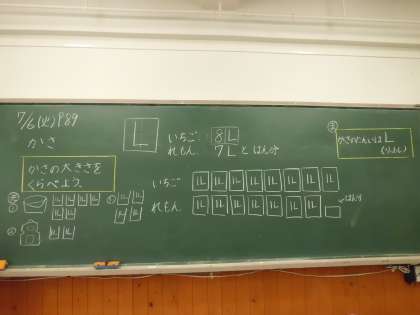 7/6(火)P89
かさ
かさの大きさを
くらべよう。
L
いちご 8L
れもん 7Lとはん分
いちご 1L 1L 1L 1L 1L 1L 1L 1L
れもん 1L 1L 1L 1L 1L 1L 1L
はん分
① 1L 1L 1L 1L
1L 1L
② 1L 1L
1L 1L
1L 1L
ま
かさのたんいは L
(リットル)